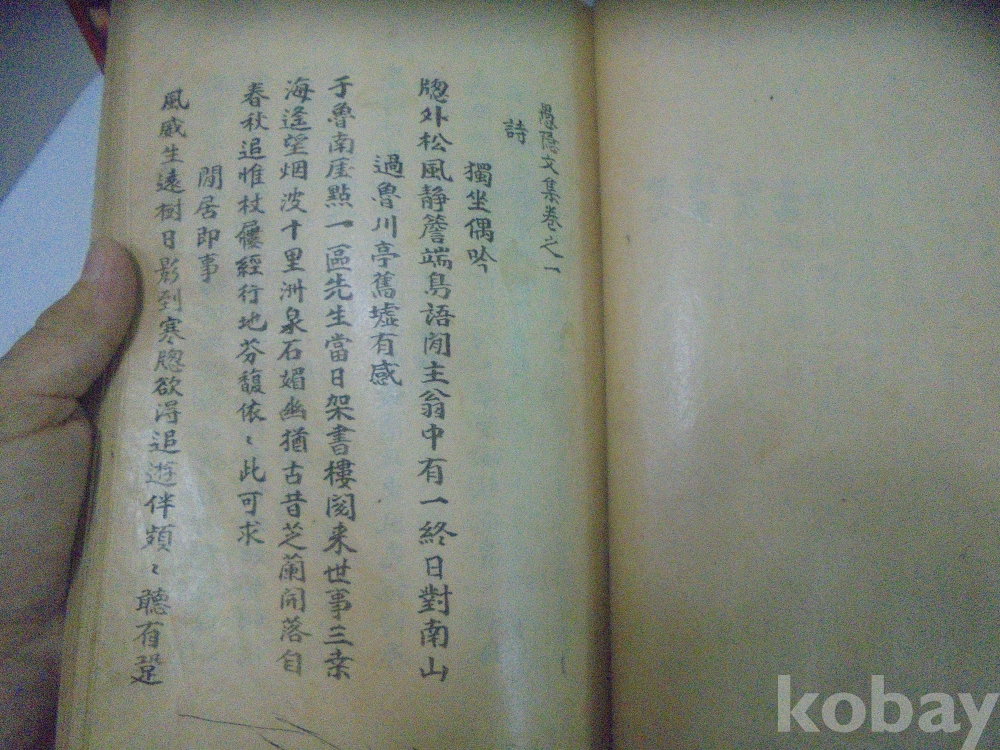 愚隱文集卷之一
詩
獨坐偶吟
牕外松風静簷端鳥語閒主翁中有一終日對南山
過魯川亭舊墟有感
于魯南厓點一區先生當日架書樓閱来世事三桒
海遙望烟波十里洲泉石媚幽猶古昔芝蘭開落自
春秋追惟杖屨經行地芬馥依〻此可求
閒居即事
風威生遠樹日影到寒牕欲淂追遊伴頻〻聽有跫
kobay